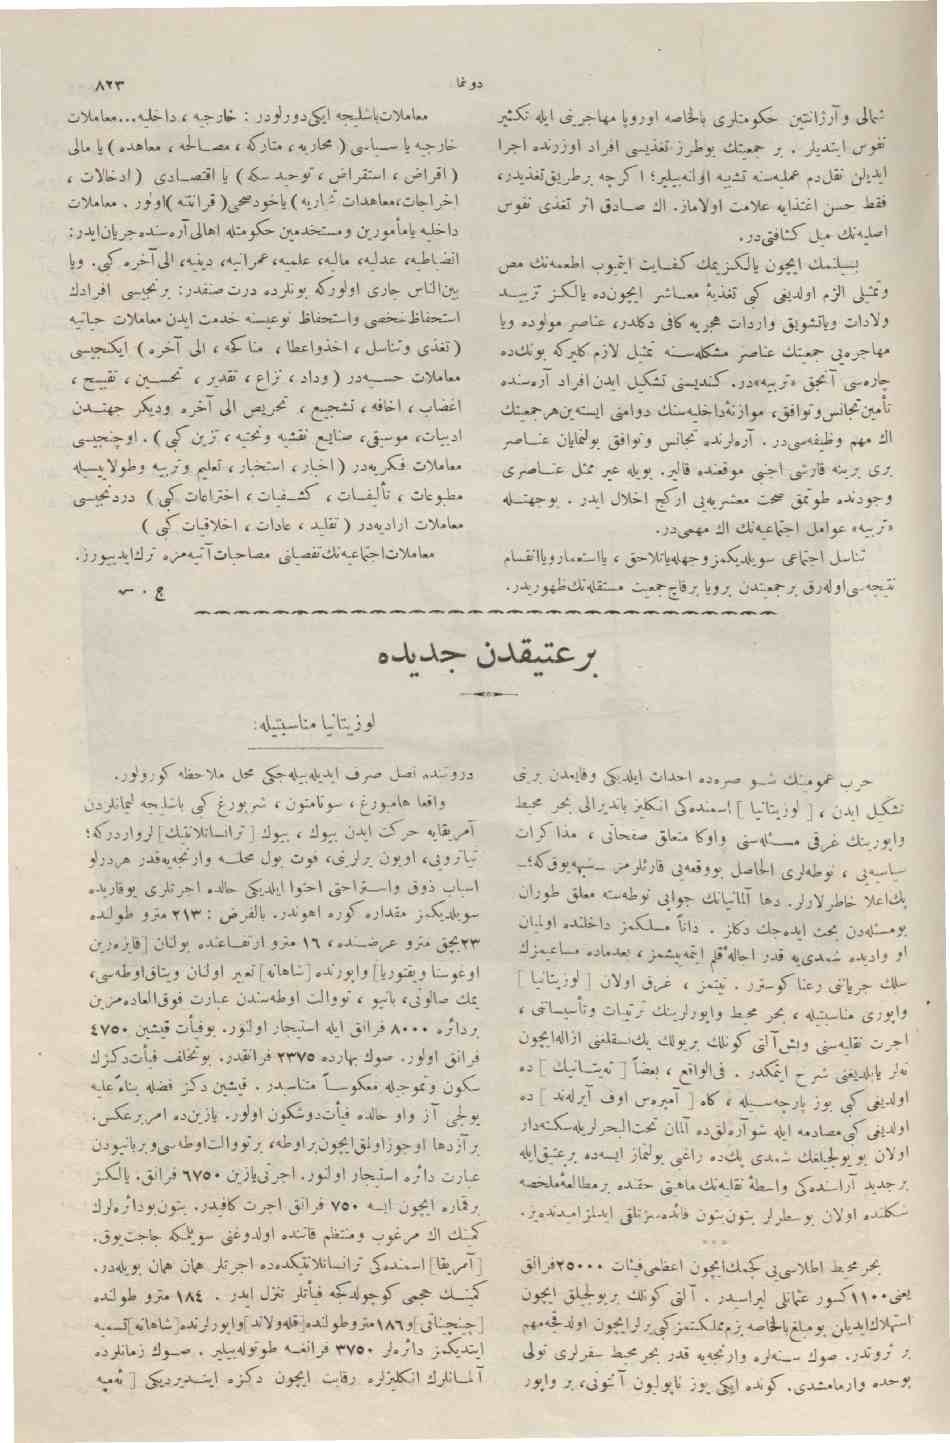 دونما
٨٢٣
شمالی وآرژانتین حکومتلری بالخاصه اوروپا مهاجرینی ایله تکثیر
نفوس ایتدیلر . بر جمعیتك بوطرز تغذیسی افراد اوزرنده اجرا
ایدیلن نقل‌دم عملیه‌سنه تشبیه اولنه‌بیلیر؛ اکرچه برطریق تغذیدر،
فقط حسن اغتذایه علامت اولاماز. اك صادق اثر تغذی نفوس
اصلیه‌نك میل کثافتی‌در.
بسلنمك ایچون یالکز یمك کفایت ایتمیوب اطعمه‌نك مص
وتمثیلی الزم اولدیغی کبی تغذیهٔ معاشر ایچون‌ده یالکز تزیید
ولادات ویاتشویق واردات هجریه کافی دکلدر، عناصر مولوده ویا
مهاجره‌یی جمعیتك عناصر مشکله‌سنه تمثیل لازم کلیرکه بونك‌ده
چاره‌سی آنجق «تربیه»در. کندیسنی تشکیل ایدن افراد آره‌سنده
تأمین تجانس‌وتوافق، موازنهٔ داخلیه‌سنك دوامنی ایسته‌ین‌هرجمعیتك
اك مهم وظیفه‌سی‌در . آره‌لرنده تجانس وتوافق بولنمایان عناصر
بری برینه قارشی اجنبی موقعنده قالیر. بویله غیر ممثل عناصری
وجودنده طوتمق صحت معشریه‌یی ارکچ اخلال ایدر . بوجهتله
«تربیه» عوامل اجتماعیه‌نك اك مهمی‌در.
تناسل اجتماعی سویلدیکمز وجهله یاتلاحق ، یااستعمار ویاانقسام
نتیجه‌سی‌اوله‌رق برجمعیتدن برویا برقاچ جمعیت مستقله‌نك ظهوریدر.
معاملات باشلیجه ایکی‌دورلودر : خارجیه ، داخلیه... معاملات
خارجیه یا سیاسی ( محاربه ، متارکه ، مصالحه ، معاهده ) یا مالی
( اقراض ، استقراض ، توحید سکه ) یا اقتصادی ( ادخالات ،
اخراجات،معاهدات تجاریه ) یاخودصحی( قرانتنه )اولور . معاملات
داخلیه یامأمورین ومستخدمین حکومتله اهالی آره‌سنده‌جریان‌ایدر:
انضباطیه، عدلیه، مالیه، علمیه، عمرانیه، دینیه، الی آخره کبی. ویا
بین‌الناس جاری اولورکه بونلرده درت صنفدر: برنجیسی افرادك
استحفاظ شخصی واستحفاظ نوعیسنه خدمت ایدن معاملات حیاتیه
( تغذی وتناسل ، اخذواعطا ، مناکحه ، الی آخره ) ایکنجیسی
معاملات حسیه‌در ( وداد ، نزاع ، تقدیر ، تحسین ، تقبیح ،
اغضاب ، اخافه ، تشجیع ، تحریص الی آخره ودیکر جهتدن
ادبیات، موسیقی، صنایع نقشیه ونحتیه ، تزین کبی ) . اوچنجیسی
معاملات فکریه‌در ( اخبار ، استخبار ، تعلیم وتربیه وطولاییسیله
مطبوعات ، تألیفات ، کشفیات ، اختراعات کبی ) دردنجیسی
معاملات ارادیه‌در ( تقلید ، عادات ، اخلاقیات کبی )
معاملات اجتماعیه‌نك‌تفصیلنی مصاحبات آتیه‌مزه ترك‌ایدییورز.
ج . س
بر عتیقدن جدیده
لوزیتانیا مناسبتیله:
حرب عمومینك شو صره‌ده احداث ایلدیکی وقایعدن برینی
تشکیل ایدن ، [ لوزیتانیا ] اسمنده‌کی انکلیز باندیرالی بحر محیط
واپورینك غرقی مسئله‌سنی واوکا متعلق صفحاتی ، مذاکرات
سیاسیه‌یی ، نوطه‌لری الحاصل بووقعه‌یی قارئلرمز شبهه‌یوق‌که؛
پك‌اعلا خاطرلارلر. دها آلمانیانك جوابی نوطه‌سنه معلق طوران
بومسئله‌دن بحث ایده‌جك دکلز . ذاتاً مسلکمز داخلنده اولمیان
او وادیده شمدی‌یه قدر احاله‌ٔ قلم ایتمه‌ییشمز ، بعدماده مساعیمزك
سلك جریانی رعنا کوسترر. نیتمز ، غرق اولان [ لوزیتانیا ]
واپوری مناسبتیله ، بحر محیط واپورلرینك ترتیبات وتأسیساتی ،
اجرت نقلیه‌سنی وبش‌آلتی کونلك بریولك یك‌نسقلغنی ازاله‌ایچون
نه‌لر یاپلدیغنی شرح ایتمکدر . فی‌الواقع ، بعضاً [ ته‌یتانیك ] ده
اولدیغی کبی بوز پارچه‌سیله ، کاه [ آمپره‌س اوف آیرله‌ند ] ده
اولدیغی کبی‌مصادمه ایله شوآره‌لق‌ده آلمان تحت‌البحرلریله‌سکته‌دار
اولان بو یولجیلغك شمدی پك‌ده راغبی بولنماز ایسه‌ده برعتیق‌ایله
برجدید آراسنده‌کی واسطهٔ نقلیه‌نك ماهیتی حقنده برمطالعهٔ ملخصه
شکلنده اولان بوسطرلر بتون‌بتون فائده‌سزتلقی ایدلمزامیدنده‌یز.
بحر محیط اطلاسی‌یی کچمك‌ایچون اعظمی فیئات ٢٥٠٠٠فرانق
یعنی١١٠٠کسور عثمانلی لیراسیدر . آلتی کونلك بریولجیلق ایچون
استهلاك‌ایدیلن بومبلغ‌بالخاصه بزم‌مملکتمزکبی یرلرایچون اولدقجه‌مهم
بر ثروتدر. صوك سنه‌لره وارنجه‌یه قدر بحر محیط سفرلری نولی
بوحده وارمامشدی. کونده ایکی یوز ناپولیون آلتونی، بر واپور
دروننده نصل صرف ایدیله‌بیله‌جکی محل ملاحظه کورولور.
واقعا هامبورغ ، سوتامتون ، شربورغ کبی باشلیجه لیمانلردن
آمریقایه حرکت ایدن بیوك ، بیوك [ ترانسانلانتیك]لرواردرکه؛
تیاترویی، اویون یرلرینی، فوت بول محلنه وارنجه‌یه‌قدر هردرلو
اسباب ذوق واستراحتی احتوا ایلدیکی حالده اجرتلری یوقاریده
سویلدیکمز مقداره کوره اهوندر. بالفرض : ٢١٣ مترو طولنده
٢٣بچق مترو عرضنده، ١٦ مترو ارتفاعنده بولنان [قایزه‌رین
اوغوستا ویقتوریا] واپورنده [شاهانه] تعبیر اولنان ویتاق‌اوطه‌سی،
یمك صالونی، بانیو ، تووالت اوطه‌سندن عبارت فوق‌العاده‌مزین
بردائره ٨٠٠٠ فرانق ایله استیجار اولنور. بوفیأت قیشین ٤٧٥٠
فرانق اولور. صوك بهارده ٢٣٧٥ فرانقدر. بوتخلف فیأت‌دکزك
سکون وتموجیله معکوساً متناسبدر . قیشین دکز فضله بناءً علیه
یولجی آز واو حالده فیأت‌دوشکون اولور. یازین‌ده امر برعکس.
برآزدها اوجوزاولمق‌ایچون‌براوطه، برتووالت‌اوطه‌سی‌وبربانیودن
عبارت دائره استیجار اولنور. اجرتی‌یازین ٦٧٥٠ فرانق. یالکز
برقماره ایچون ایسه ٧٥٠ فرانق اجرت کافیدر. بتون‌بودائره‌لرك
کمینك اك مرغوب ومنتظم قاتنده اولدوغنی سویلمکه حاجت‌یوق.
[آمریقا] اسمنده‌کی ترانسانلانتیکده‌ده اجرتلر همان همان بویله‌در.
کمینك حجمی کوچولدکجه فیأتلر تنزل ایدر . ١٨٤ مترو طولنده
[چینچیناتی]و١٨٦متروطولنده[قله‌ولاند]واپورلرنده[شاهانه]تسمیه
ایتدیکمز دائره‌لر ٣٧٥٠ فرانغه طوتوله‌بیلیر . صوك زمانلرده
آلمانلرك انکلیزلره رقابت ایچون دکزه ایندیردیکی [ ئه‌مپه